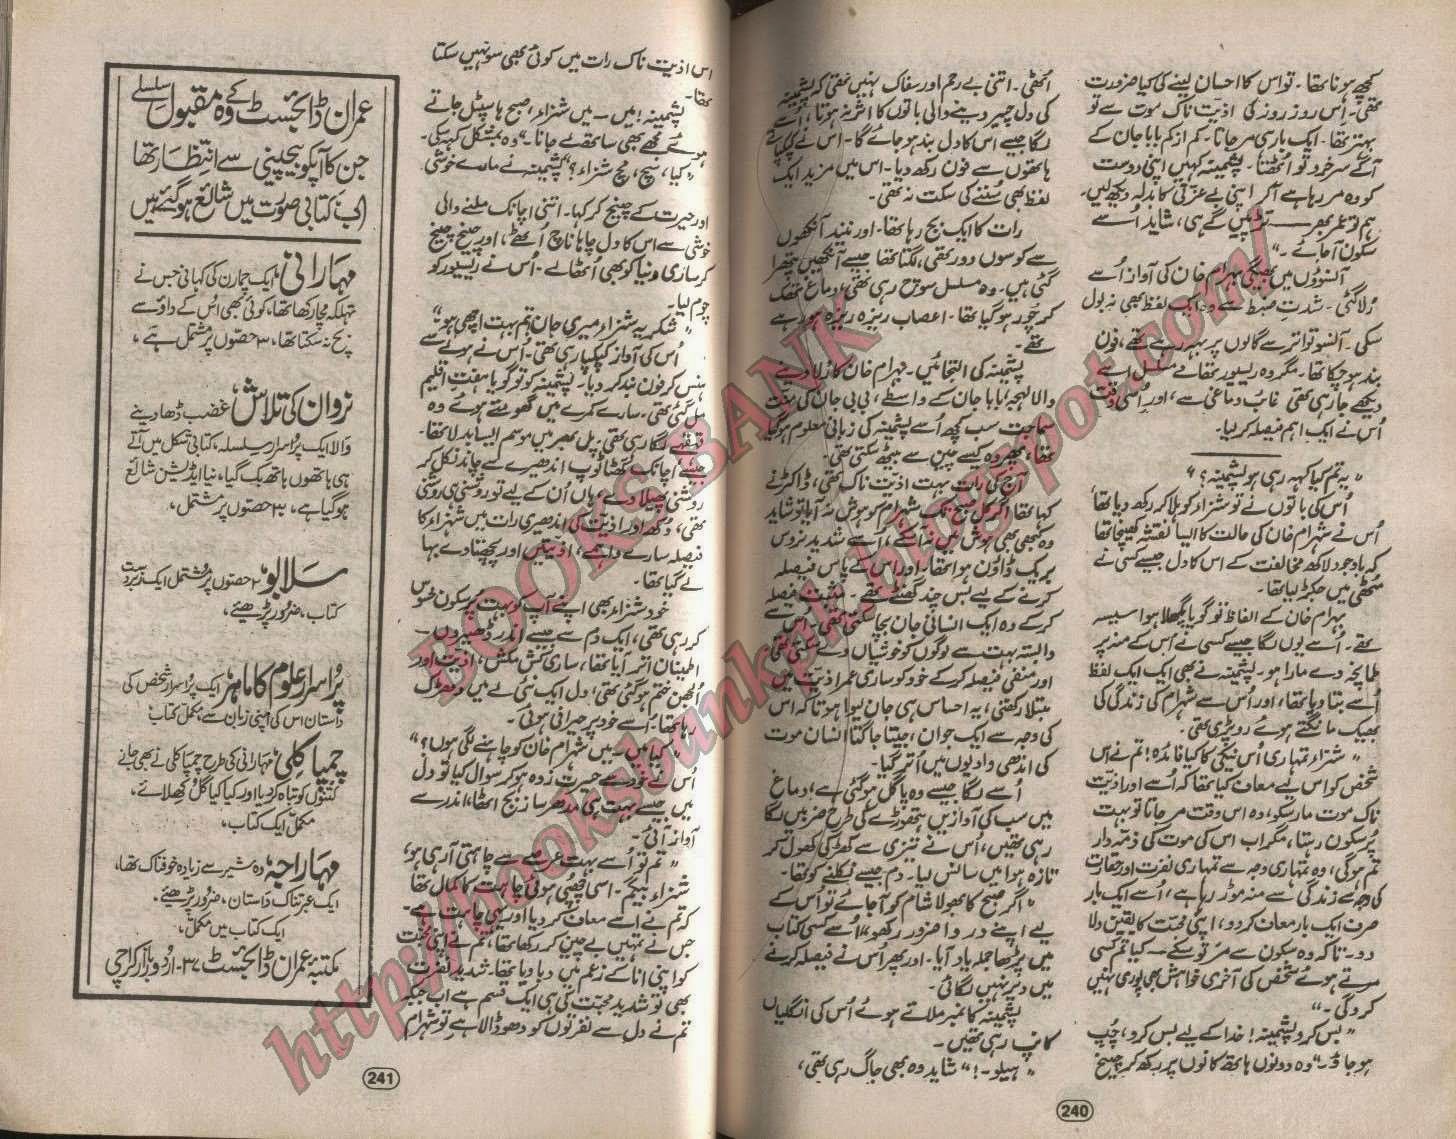 کچھ ہونا تھا۔ تو اس کا احسان لینے کی کیا ضرورت
تھی۔ اس روز روز کی اذیت ناک موت سے تو
بہتر تھا۔ ایک بار ہی مر جاتا۔ کم از کم بابا جان کے
آگے سرخرو تو اٹھتا۔ پشمینہ کہیں اپنی دوست
کو وہ مر رہا ہے آکر اپنی بے عزتی کا بدلہ دیکھ لیں۔
ہم تو عمر بھر ۔۔۔ تڑپیں گے ہی، شاید اسے
سکون آجائے۔"
آنسوؤں میں بھیگی بہرام خان کی آواز اُسے
رُلا گئی۔ شدتِ ضبط سے وہ ایک لفظ بھی نہ بول
سکی۔ آنسو تواتر سے گالوں پر بہہ رہے تھے، فون
بند ہو چکا تھا۔ مگر وہ ریسیور تھامے مسلسل اسے
دیکھے جا رہی تھی غائب دماغی سے، اور اُسی وقت
اُس نے ایک اہم فیصلہ کر لیا۔
"یہ تم کیا کہہ رہی ہو پشمینہ؟"
اُس کی باتوں نے تو شنزاء کو ہلا کر رکھ دیا تھا
اُس نے شہرام خان کی حالت کا ایسا نقشہ کھینچا تھا
کہ باوجود لاکھ مخالفت کے اس کا دل جیسے کسی نے
مُٹھی میں جکڑ لیا تھا۔
بہرام خان کے الفاظ تو گویا پگھلا ہوا سیسہ
تھے۔ اُسے یوں لگا جیسے کسی نے اُس کے منہ پر
طمانچہ دے مارا ہو۔ پشمینہ نے بھی ایک ایک لفظ
اُسے بتا دیا تھا، اور اُس سے شہرام کی زندگی کی
بھیک مانگتے ہوئے رو پڑی تھی۔
"شنزاء تمہاری اُس نیکی کا کیا فائدہ! تم نے اس
شخص کو اس لیے معاف کیا تھا کہ اُسے اور اذیت
ناک موت مار سکو، وہ اس وقت مر جاتا تو بہت
پُرسکون رہتا، مگر اب اس کی موت کی ذمہ دار
تم ہوگی، وہ تمہاری وجہ سے تمہاری نفرت اور حقارت
کی وجہ سے زندگی سے منہ موڑ رہا ہے، اُسے ایک بار
صرف ایک بار معاف کر دو، اپنی محبت کا یقین دلا
دو۔ تاکہ وہ سکون سے مر تو سکے۔ کیا تم کسی
مرتے ہوئے شخص کی آخری خواہش بھی پوری نہیں
کرو گی۔"
"بس کرو پشمینہ! خدا کے لیے بس کرو، چُپ
ہو جاؤ۔" وہ دونوں ہاتھ کانوں پر رکھ کر چیخ
اُٹھی۔ اتنی بے رحم اور سفاک نہیں تھی کہ پشمینہ
کی دل چیر دینے والی باتوں کا اثر نہ ہوتا، اُسے
لگا جیسے اس کا دل بند ہو جائے گا۔ اس نے کپکپاتے
ہاتھوں سے فون رکھ دیا۔ اس میں مزید ایک
لفظ بھی سُننے کی سکت نہ تھی۔
رات کا ایک بج رہا تھا۔ اور نیند آنکھوں
سے کوسوں دور تھی، لگتا تھا جیسے آنکھیں پتھرا
گئی ہیں۔ وہ مسلسل سوچ رہی تھی، دماغ تھک
کر چور ہو گیا تھا۔ اعصاب ریزہ ریزہ ہو رہے
تھے۔
پشمینہ کی التجائیں۔ بہرام خان کا رُلا دینے
والا لہجہ، بابا جان کے واسطے، بی بی جان کی منت
سماجت سب کچھ اُسے پشمینہ کی زبانی معلوم ہو گیا
تھا، پھر وہ کیسے چین سے بیٹھ سکتی تھی۔
آج کی رات بہت اذیت ناک تھی، ڈاکٹر نے
کہا تھا اگر کل صبح تک شہرام کو ہوش نہ آیا تو شاید
وہ کبھی بھی ہوش میں نہ آسکے، اُسے شدید نروس
بریک ڈاؤن ہوا تھا۔ اور اس کے پاس فیصلہ
کرنے کے لیے بس چند گھنٹے تھے۔ مثبت فیصلہ
کر کے وہ ایک انسانی جان بچا سکتی تھی، اس سے
وابستہ بہت سے لوگوں کو خوشیاں دے سکتی تھی۔
اور منفی فیصلہ کر کے خود کو ساری عمر اذیت میں
مبتلا رکھتی، یہ احساس ہی جان لیوا ہوتا کہ اس
کی وجہ سے ایک جوان، جیتا جاگتا انسان موت
کی اندھی وادیوں میں اُتر گیا۔
اُسے لگا جیسے وہ پاگل ہو گئی ہے، دماغ
میں سب کی آوازیں ہتھوڑے کی طرح ضربیں لگا
رہی تھیں، اُس نے تیزی سے کھڑکی کھول کر
تازہ ہوا میں سانس لیا۔ دم جیسے نکلنے کو تھا۔
"اگر صبح کا بھولا شام کو آجائے تو اُس کے
لیے اپنے در وا ضرور رکھو" اُسے کسی کتاب
میں پڑھا جملہ یاد آیا۔ اور پھر اُس نے فیصلہ کرنے
میں دیر نہیں لگائی۔
پشمینہ کا نمبر ملاتے ہوئے اُس کی انگلیاں
کانپ رہی تھیں۔
"ہیلو۔!" شاید وہ بھی جاگ رہی تھی،
240
اس اذیت ناک رات میں کوئی بھی سو نہیں سکتا
تھا۔
پشمینہ! میں۔ میں شنزاء، صبح ہاسپٹل جاتے
ہوئے مجھے بھی ساتھ لے جانا۔" وہ بمشکل کہہ سکی۔
"کیا، سچ، مچ شنزاء؟" پشمینہ نے مارے خوشی
اور حیرت کے چیخ کر کہا۔ اتنی اچانک ملنے والی
خوشی سے اس کا دل چاہا ناچ اٹھے، اور چیخ چیخ
کر ساری دنیا کو بھی اُٹھا لے۔ اُس نے ریسیور کو
چوم لیا۔
"شکریہ شنزاء میری جان تم بہت اچھی ہو"
اُس کی آواز کپکپا رہی تھی۔ اُس نے ہولے سے
ہنس کر فون بند کر دیا۔ پشمینہ کو تو گویا ہفت اقلیم
مل گئی تھی۔ سارے کمرے میں گھومتے ہوئے وہ
قہقہے لگا رہی تھی، پل بھر میں موسم ایسا بدلا تھا۔
جیسے اچانک گھٹا ٹوپ اندھیرے سے چاند نکل کر
روشنی پھیلا دے، ہاں اُن کے لیے تو روشنی ہی روشنی
تھی، دکھ اور اذیت کی اندھیری رات میں شنزاء کا
فیصلہ سارے ولہمے، اذیتیں اور پچھتاوے بہا
لے گیا تھا۔
خود شنزاء بھی اپنے آپ کو بہت پُرسکون محسوس
کر رہی تھی، ایک دم سے جیسے اندر ڈھیروں۔
اطمینان اتر آیا تھا، ساری کش مکش، اذیت اور
اُلجھن ختم ہو گئی تھی، دل ایک نئی لے میں دھڑک
رہا تھا، اُسے خود پر حیرانی ہوئی۔
"کیا میں۔ میں شہرام خان کو چاہنے لگی ہوں؟"
اُس نے خود سے حیرت زدہ ہو کر سوال کیا تو دل
میں جیسے بہت ہی مدھر ساز بج اٹھا، اندر سے
آواز آئی۔
"تم تو اُسے بہت عرصے سے چاہتی آ رہی ہو،
شنزاء بیگم۔ اسی چھپی ہوئی چاہت کا کمال تھا
کہ تم نے اسے معاف کر دیا اور یہی چاہت ہے۔
جس نے تمہیں بے چین کر رکھا تھا، تم نے اپنی محبت
کو اپنی انا کے زعم میں دبا دیا تھا۔ شدید نفرت
بھی تو شدید محبت کی ہی ایک قسم ہے اب جبکہ
تم نے دل سے نفرتوں کو دھو ڈالا ہے تو شہرام
241
عمران ڈائجسٹ کے وہ مقبول سلسلے
جن کا آپکو بیچینی سے انتظار تھا
اب کتابی صورت میں شائع ہو گئے ہیں
مہارانی، ایک چمارن کی کہانی جس نے
تہلکہ مچا رکھا تھا، کوئی بھی اُس کے داؤ سے
بچ نہ سکتا تھا، ۳ حصوں پر مشتمل ہے،
نروان کی تلاش، غضب ڈھا دینے
والا ایک پُراسرار سلسلہ، کتابی شکل میں آتے
ہی ہاتھوں ہاتھ بک گیا، نیا ایڈیشن شائع
ہو گیا ہے، ۳ حصوں پر مشتمل،
سلابو، ۲ حصوں پر مشتمل ایک زبردست
کتاب، ضرور پڑھیئے،
پُراسرار علوم کا ماہر ایک پُراسرار شخص کی
داستان اس کی اپنی زبان سے، مکمل کتاب
چمپا کلی، مہارانی کی طرح چمپا کلی نے بھی جانے
کتنوں کو تباہ کر دیا اور کیا کیا گل کھلائے،
مکمل ایک کتاب،
مہاراجہ وہ شیر سے زیادہ خوفناک تھا،
ایک عبرتناک داستان، ضرور پڑھیئے،
ایک کتاب میں مکمل،
مکتبہ عمران ڈائجسٹ ۳۷۔ اُردو بازار کراچی
BOOKS BANK
http://booksbankpk.blogspot.com/